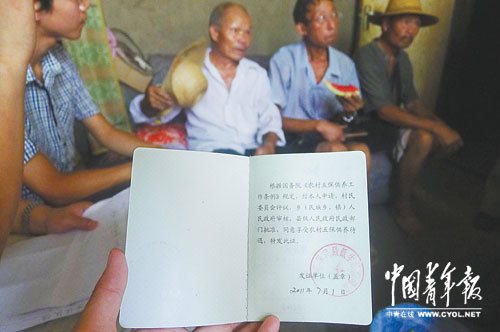 根据国务院《农村五保供养工
作条例》规定，经本人申请，村民
委员会评议，乡（民族乡、镇）人
民政府审核，县级人民政府民政部
门批准，同意享受农村五保供养待
遇，特发此证。
发证单位（盖章）
2011年7月1日
中国青年报
中青在线 www.CYOL.net